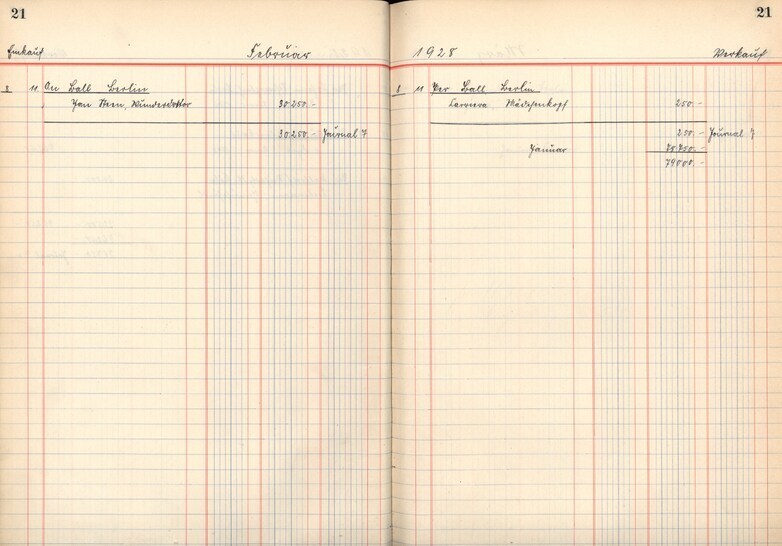 21
Einkauf Februar
8 11 An Ball Berlin
Jan Steen, Wunderdoktor 30 250.-
30 250.- Journal 7
21
1928 Verkauf
8 11 Per Ball Berlin
Mädchenkopf 250.-
250.- Journal 7
Januar 78 750.-
79000.-